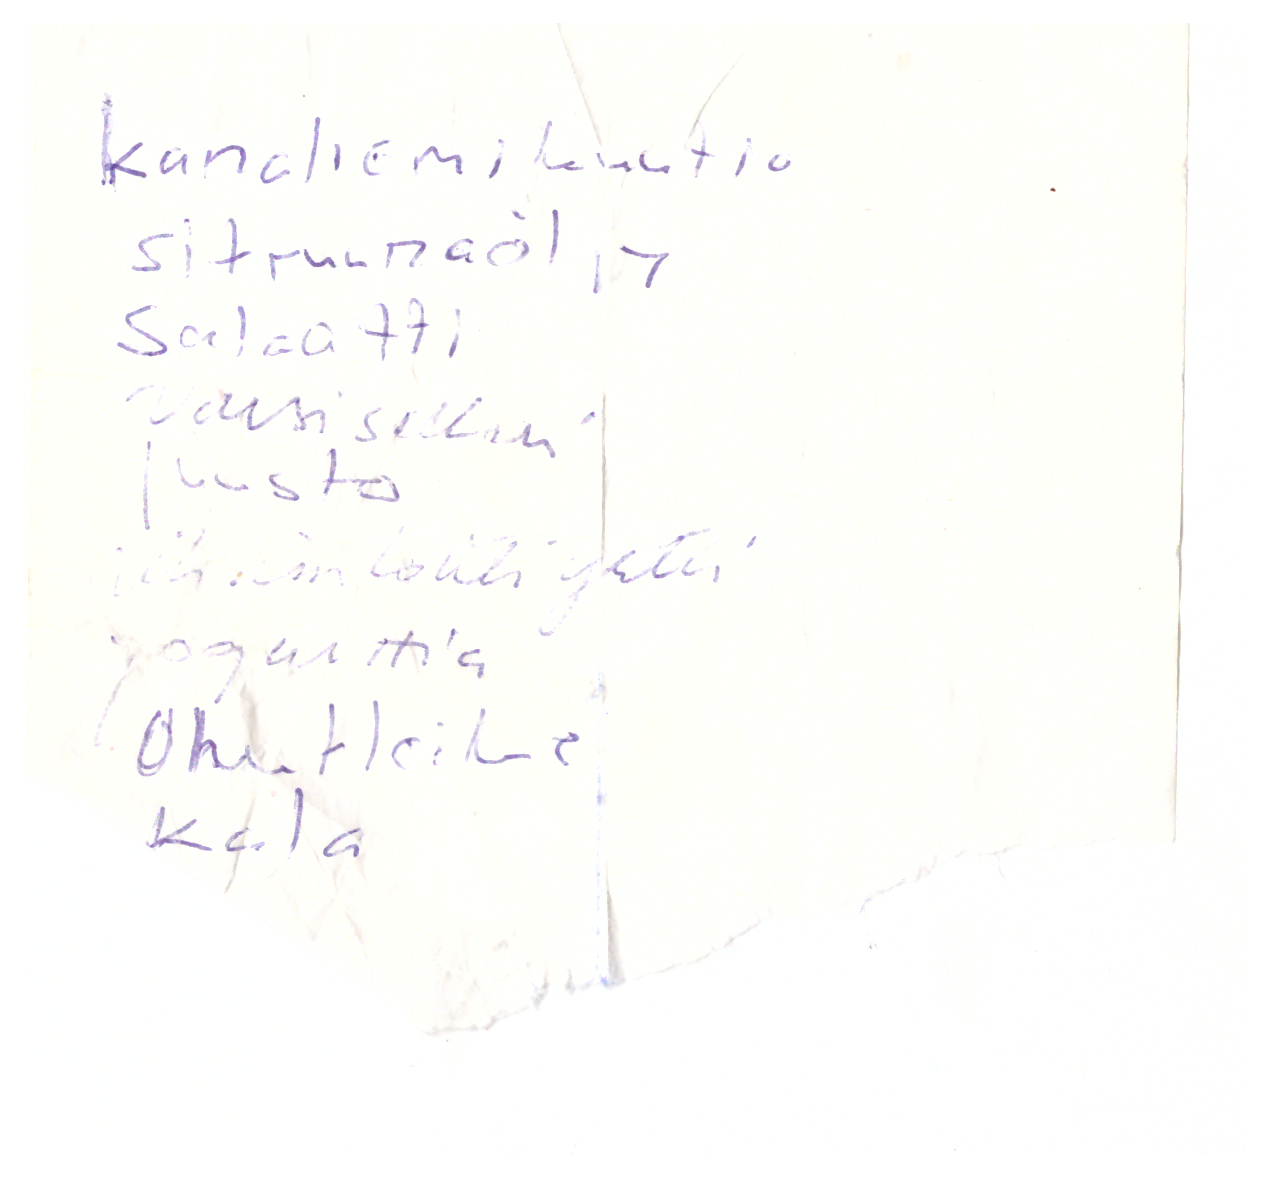 kanaliemikuutio
sitruunaöljy
Salaatti
varsiselleri
juusto
jogurttia
Ohutleike
kala